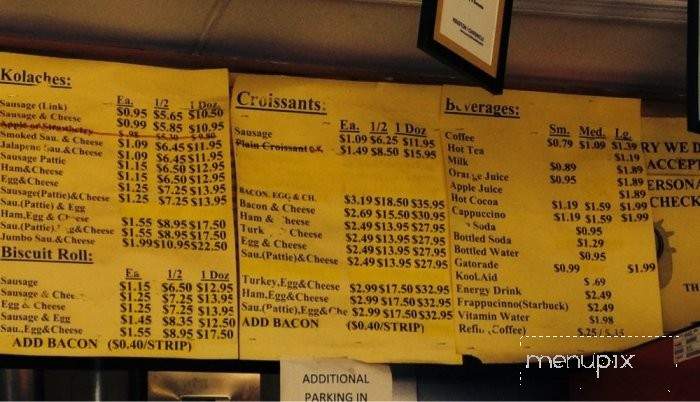 Kolaches:
Ea. 1/2 1 Doz
Sausage (Link) $0.95 $5.65 $10.50
Sausage & Cheese $0.99 $5.85 $10.95
Apple or Strawberry $.98 $5.30 $9.80
Smoked Sau. & Cheese $1.09 $6.45 $11.95
Jalapeno Sau.&Cheese $1.09 $6.45 $11.95
Sausage Pattie $1.15 $6.50 $12.95
Ham&Cheese $1.15 $6.50 $12.95
Egg&Cheese $1.25 $7.25 $13.95
Sausage(Pattie)&Cheese $1.25 $7.25 $13.95
Sau.(Pattie) & Egg
Ham,Egg & Cheese $1.55 $8.95 $17.50
Sau.(Pattie),Egg&Cheese $1.55 $8.95 $17.50
Jumbo Sau.&Cheese $1.99 $10.95 $22.50
Biscuit Roll:
Ea 1/2 1 Doz
Sausage $1.15 $6.50 $12.95
Sausage & Cheese $1.25 $7.25 $13.95
Egg & Cheese $1.25 $7.25 $13.95
Sausage & Egg $1.45 $8.35 $12.50
Sau.,Egg&Cheese $1.55 $8.95 $17.50
ADD BACON ($0.40/STRIP)
Croissants:
Ea. 1/2 1 Doz
Sausage $1.09 $6.25 $11.95
Plain Croissant $1.49 $8.50 $15.95
BACON, EGG & CH. $3.19 $18.50 $35.95
Bacon & Cheese $2.69 $15.50 $30.95
Ham & Cheese $2.49 $13.95 $27.95
Turk Cheese $2.49 $13.95 $27.95
Egg & Cheese $2.49 $13.95 $27.95
Sau.(Pattie)&Cheese $2.49 $13.95 $27.95
Turkey,Egg&Cheese $2.99 $17.50 $32.95
Ham,Egg&Cheese $2.99 $17.50 $32.95
Sau.(Pattie),Egg&Che $2.99 $17.50 $32.95
ADD BACON ($0.40/STRIP)
Beverages:
Sm. Med. Lg.
Coffee $0.79 $1.09 $1.39
Hot Tea $1.19
Milk $0.89 $1.89
Orange Juice $0.95 $1.89
Apple Juice $1.89
Hot Cocoa $1.19 $1.59 $1.99
Cappuccino $1.19 $1.59 $1.99
Soda $0.95
Bottled Soda $1.29
Bottled Water $0.95
Gatorade $1.99
KoolAid $0.99
Energy Drink $.69
Frappucinno(Starbuck) $2.49
Vitamin Water $2.49
Refill (Coffee) $1.98
$.25 /
RY WE D
ACCEPT
ERSON
CHECK
TH
ADDITIONAL
PARKING IN
menupix